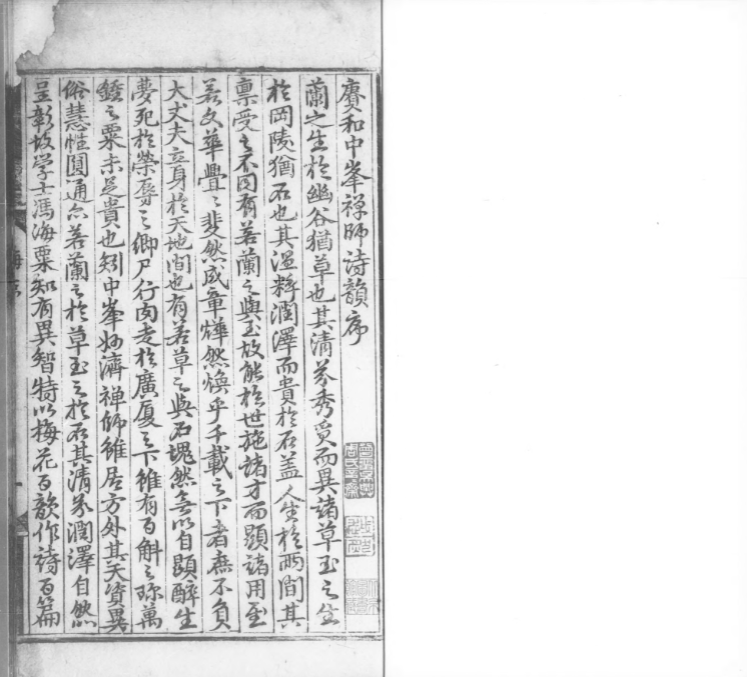 賡和中峯禪師詩韻序
蘭之生於幽谷猶草也其清芬秀質而異諸草玉之生
於岡陵猶石也其溫粹潤澤而貴於石盖人生於兩間其
禀受之不同有若蘭之與玉故能於世施諸才而顯諸用至
若文華亹〻斐然成章燁然煥乎千載之下者庶不負
大丈夫立身於天地間也有若草之與石塊然無以自顯醉生
夢死於榮辱之鄉尸行肉走於廣厦之下雖有百斛之珎萬
鍾之粟未足貴也矧中峯妙濟禪師雖居方外其天資異
俗慧性圓通亦若蘭之於草玉之於石其清芬潤澤自然
呈彰故学士馮海粟知有異智特以梅花百韻作詩百篇